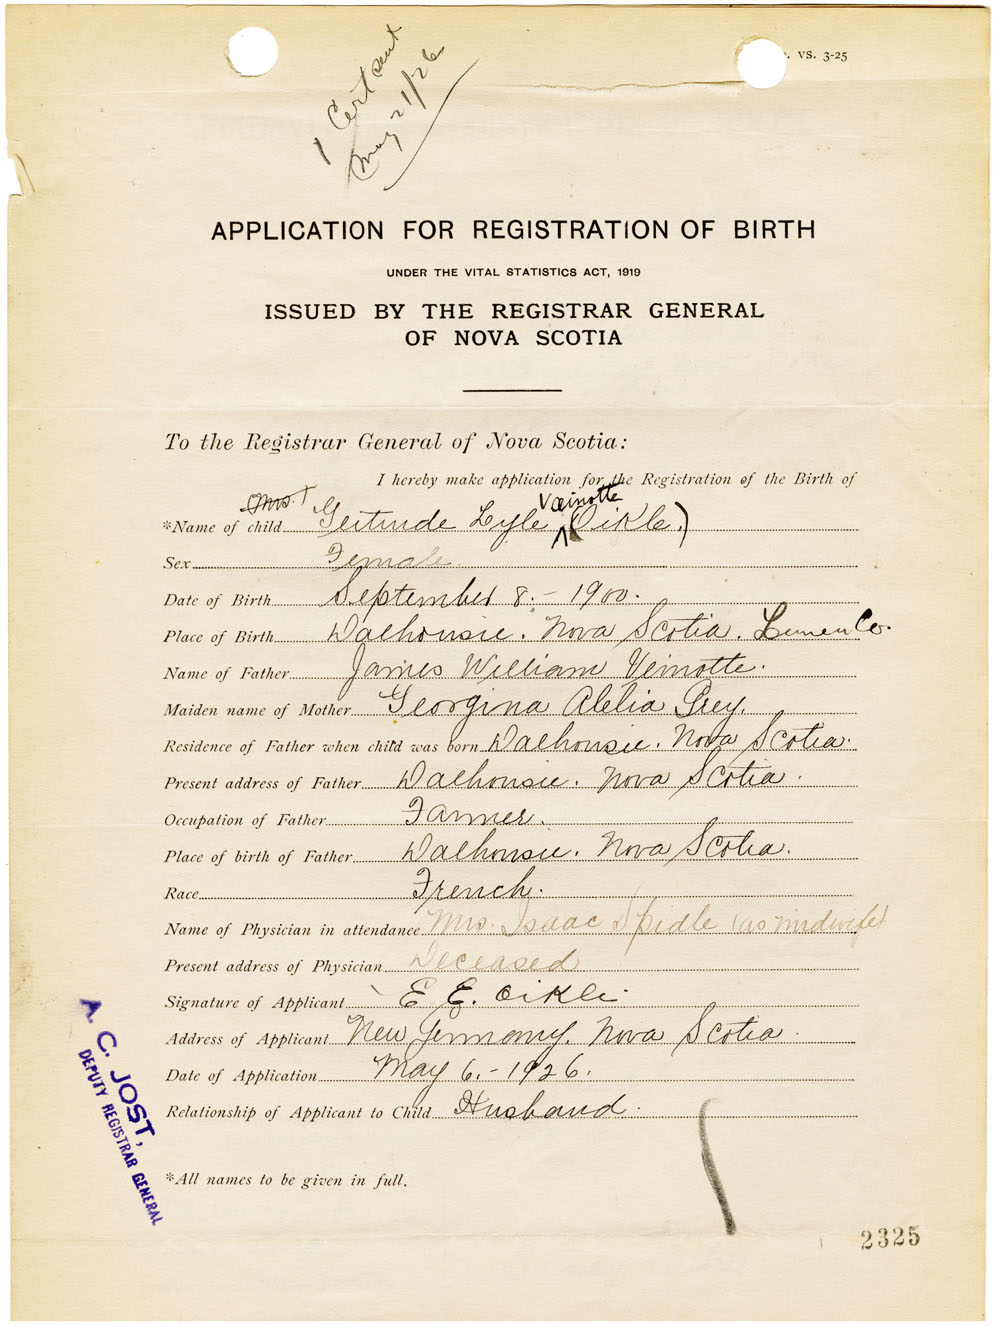 . VS. 3-25
1 Cert sent
May 21/26
APPLICATION FOR REGISTRATION OF BIRTH
UNDER THE VITAL STATISTICS ACT, 1919
ISSUED BY THE REGISTRAR GENERAL
OF NOVA SCOTIA
To the Registrar General of Nova Scotia:
I hereby make application for the Registration of the Birth of
Mrs. Veinotte
*Name of child Gertrude Lyle (Oikle)
Sex Female
Date of Birth September 8. - 1900.
Place of Birth Dalhousie. Nova Scotia. Lunen Co.
Name of Father James William Veinotte.
Maiden name of Mother Georgina Alelia Grey.
Residence of Father when child was born Dalhousie. Nova Scotia.
Present address of Father Dalhousie. Nova Scotia.
Occupation of Father Farmer.
Place of birth of Father Dalhousie. Nova Scotia.
Race French.
Name of Physician in attendance Mrs. Isaac Spidle (as midwife)
Present address of Physician Deceased
Signature of Applicant E. E. Oikle.
Address of Applicant New Germany. Nova Scotia.
Date of Application May 6. - 1926.
Relationship of Applicant to Child Husband.
A. C. JOST,
DEPUTY REGISTRAR GENERAL
*All names to be given in full.
2325